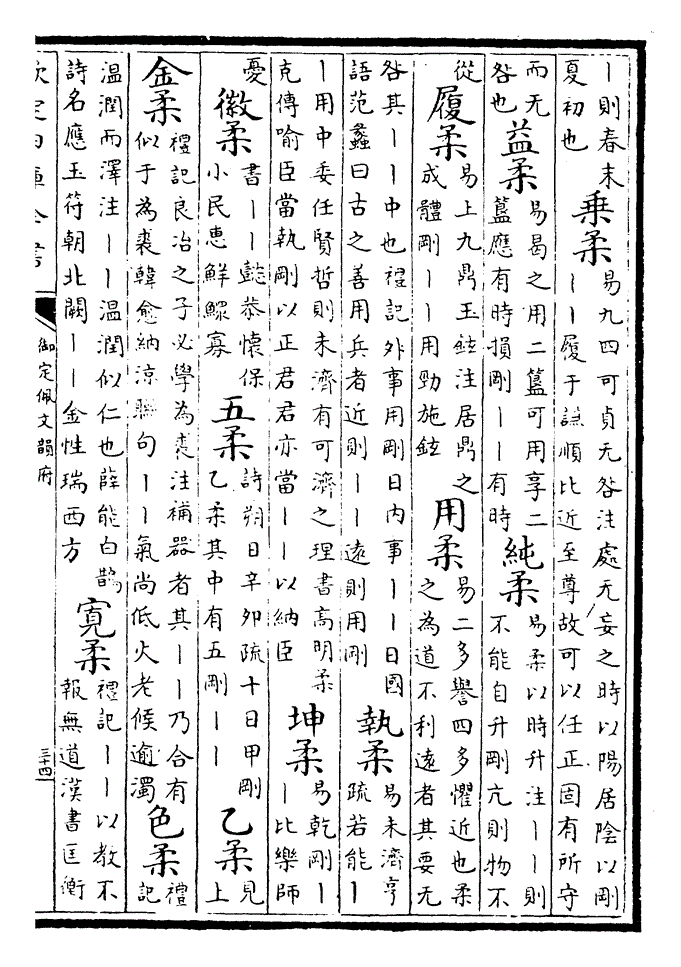 丨則春末
夏初也
乗柔
易九四可貞无咎注處无妄之時以陽居陰以剛
丨丨履于謙順比近至尊故可以任正固有所守
而无
咎也
益柔
易曷之用二簋可用享二
簋應有時損剛丨丨有時
純柔
易柔以時升注丨丨則
不能自升剛亢則物不
從
履柔
易上九鼎玉鉉注居鼎之
成體剛丨丨用勁施鉉
用柔
易二多譽四多懼近也柔
之為道不利遠者其要无
咎其丨丨中也禮記外事用剛日内事丨丨日國
語范蠡曰古之善用兵者近則丨丨遠則用剛
執柔
易未濟亨
疏若能丨
丨用中委任賢哲則未濟有可濟之理書高明柔
克傳喻臣當執剛以正君君亦當丨丨以納臣
坤柔
易乾剛丨
丨比樂師
憂
徽柔
書丨丨懿恭懷保
小民恵鮮鰥寡
五柔
詩朔日辛夘疏十日甲剛
乙柔其中有五剛丨丨
乙柔
見
上
金柔
禮記良冶之子必學為裘注補器者其丨丨乃合有
似于為裘韓愈納涼聯句丨丨氣尚低火老候逾濁
色柔
禮
記
温潤而澤注丨丨温潤似仁也薛能白鵲
詩名應玉符朝北闕丨丨金性瑞西方
寛柔
禮記丨丨以教不
報無道漢書匡衡
欽定四庫全書
御定佩文韻府
三十四